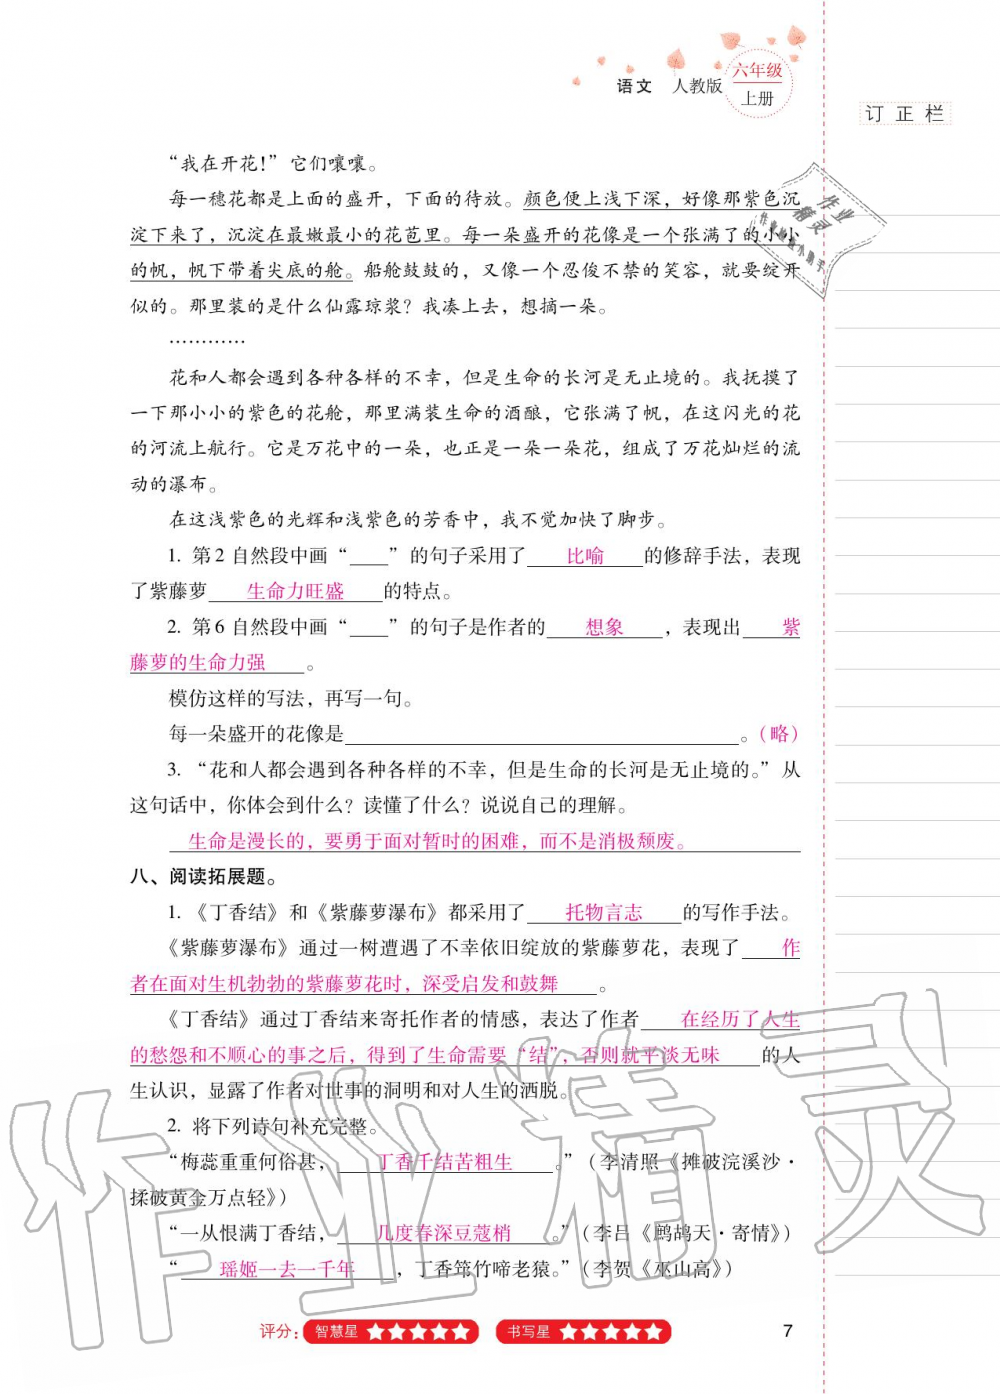 语文 人教版 六年级
上册
订正栏
“我在开花！”它们嚷嚷。
每一穗花都是上面的盛开，下面的待放。颜色便上浅下深，好像那紫色沉
淀下来了，沉淀在最嫩最小的花苞里。每一朵盛开的花像是一个张满了的小小
的帆，帆下带着尖底的舱。船舱鼓鼓的，又像一个忍俊不禁的笑容，就要绽开
似的。那里装的是什么仙露琼浆？我凑上去，想摘一朵。
…………
花和人都会遇到各种各样的不幸，但是生命的长河是无止境的。我抚摸了
一下那小小的紫色的花舱，那里满装生命的酒酿，它张满了帆，在这闪光的花
的河流上航行。它是万花中的一朵，也正是一朵一朵花，组成了万花灿烂的流
动的瀑布。
在这浅紫色的光辉和浅紫色的芳香中，我不觉加快了脚步。
1. 第2自然段中画“____”的句子采用了 比喻 的修辞手法，表现
了紫藤萝 生命力旺盛 的特点。
2. 第6自然段中画“____”的句子是作者的 想象 ，表现出 紫
藤萝的生命力强 。
模仿这样的写法，再写一句。
每一朵盛开的花像是____。（略）
3. “花和人都会遇到各种各样的不幸，但是生命的长河是无止境的。”从
这句话中，你体会到什么？读懂了什么？说说自己的理解。
生命是漫长的，要勇于面对暂时的困难，而不是消极颓废。
八、阅读拓展题。
1. 《丁香结》和《紫藤萝瀑布》都采用了 托物言志 的写作手法。
《紫藤萝瀑布》通过一树遭遇了不幸依旧绽放的紫藤萝花，表现了 作
者在面对生机勃勃的紫藤萝花时，深受启发和鼓舞 。
《丁香结》通过丁香结来寄托作者的情感，表达了作者 在经历了人生
的愁怨和不顺心的事之后，得到了生命需要“结”，否则就平淡无味 的人
生认识，显露了作者对世事的洞明和对人生的洒脱。
2. 将下列诗句补充完整。
“梅蕊重重何俗甚， 丁香千结苦粗生 。”（李清照《摊破浣溪沙·
揉破黄金万点轻》）
“一从恨满丁香结， 几度春深豆蔻梢 。”（李吕《鹧鸪天·寄情》）
“ 瑶姬一去一千年 ，丁香筇竹啼老猿。”（李贺《巫山高》）
评分： 智慧星 ★★★★★ 书写星 ★★★★★
7
作业精灵
作业精灵